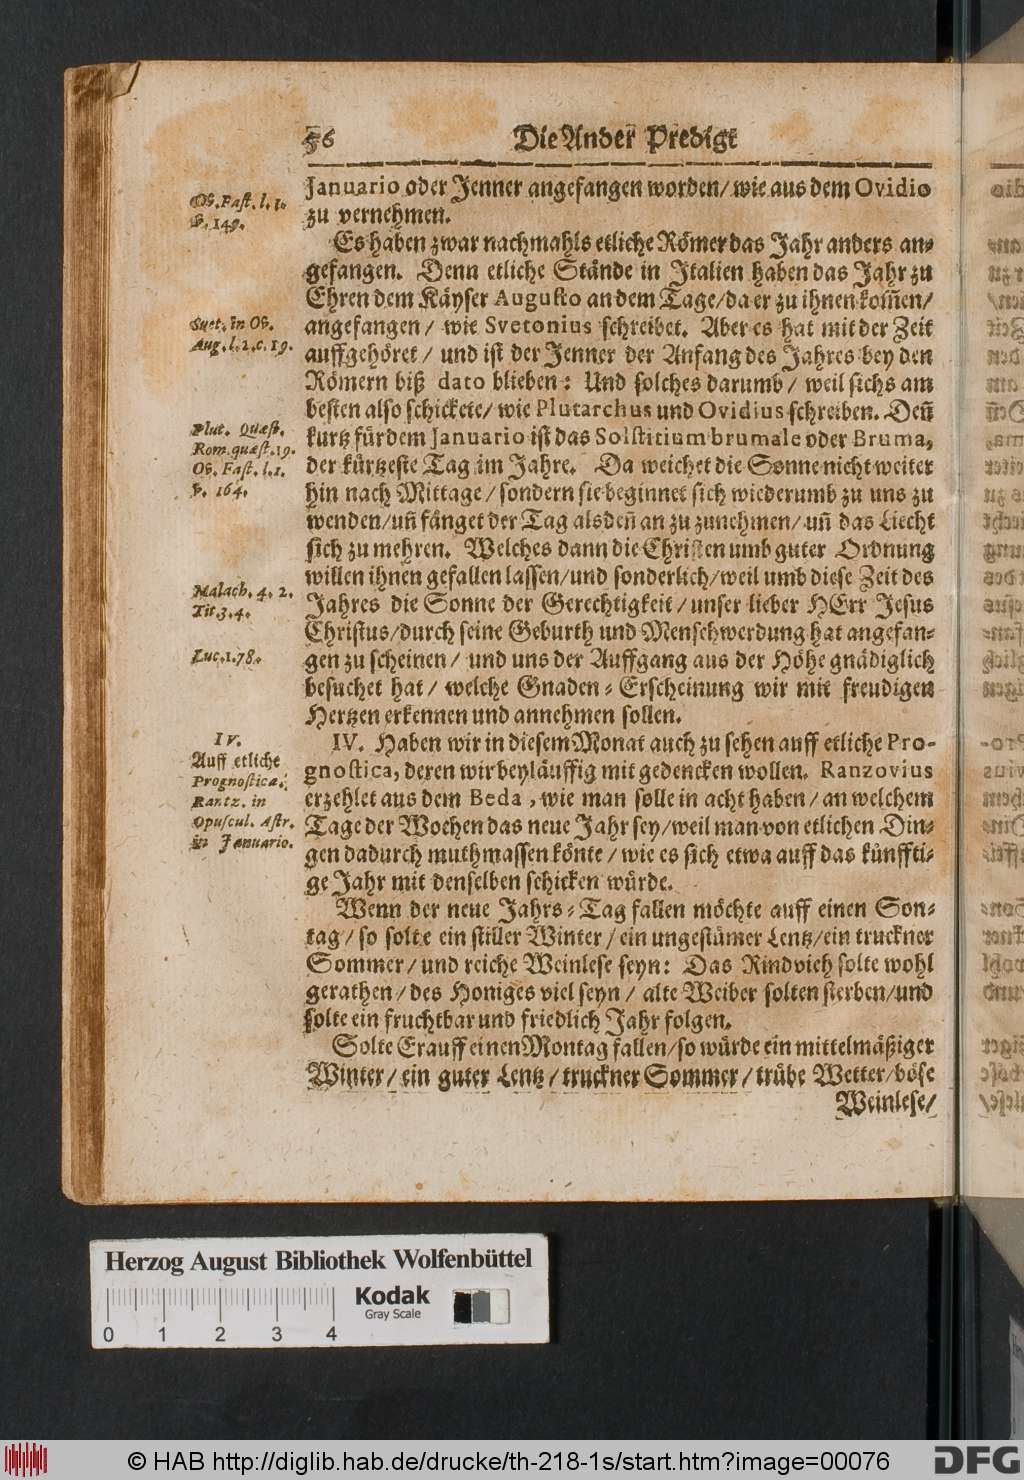 56 Die Ander Predigt
Januario oder Jenner angefangen worden/ wie aus dem Ovidio
zu vernehmen.
Es haben zwar nachmahls etliche Römer das Jahr anders an⸗
gefangen. Denn etliche Stände in Italien haben das Jahr zu
Ehren dem Käyser Augusto an dem Tage/ da er zu ihnen kom̃en/
angefangen/ wie Svetonius schreibet. Aber es hat mit der Zeit
auffgehöret/ und ist der Jenner der Anfang des Jahres bey den
Römern biß dato blieben: Und solches darumb/ weil sichs am
besten also schickete/ wie Plutarchus und Ovidius schreiben. Deñ
kurtz für dem Januario ist das Solstitium brumale oder Bruma,
der kürtzeste Tag im Jahre. Da weichet die Sonne nicht weiter
hin nach Mittage/ sondern sie beginnet sich wiederumb zu uns zu
wenden/ uñ fänget der Tag alsdeñ an zu zunehmen/ uñ das Liecht
sich zu mehren. Welches dann die Christen umb guter Ordnung
willen ihnen gefallen lassen/ und sonderlich/ weil umb diese Zeit des
Jahres die Sonne der Gerechtigkeit/ unser lieber HErr Jesus
Christus/ durch seine Geburth und Menschwerdung hat angefan⸗
gen zu scheinen/ und uns der Auffgang aus der Höhe gnädiglich
besuchet hat/ welche Gnaden⸗Erscheinung wir mit freudigen
Hertzen erkennen und annehmen sollen.
IV. Haben wir in diesem Monat auch zu sehen auff etliche Pro-
gnostica, deren wir beyläuffig mit gedencken wollen. Ranzovius
erzehlet aus dem Beda, wie man solle in acht haben/ an welchem
Tage der Wochen das neue Jahr sey/ weil man von etlichen Din⸗
gen dadurch muthmassen könte/ wie es sich etwa auff das künffti⸗
ge Jahr mit denselben schicken würde.
Wenn der neue Jahrs⸗Tag fallen möchte auff einen Son⸗
tag/ so solte ein stiller Winter/ ein ungestümer Lentz/ ein truckner
Sommer/ und reiche Weinlese seyn: Das Rindvieh solte wohl
gerathen/ des Honiges viel seyn/ alte Weiber solten sterben/ und
solte ein fruchtbar und friedlich Jahr folgen.
Solte Er auff einen Montag fallen/ so würde ein mittelmäßiger
Winter/ ein guter Lentz/ truckner Sommer/ trübe Wetter/ böse
Weinlese/
Ov. Fast. l. 1.
v. 149.
Suet. in Ov.
Aug. l. 2. c. 19.
Plut. Quæst.
Rom. quæst. 19.
Ov. Fast. l. 1.
v. 164.
Malach. 4. 2.
Tit. 3. 4.
Luc. 1. 78.
IV.
Auff etliche
Prognostica.
Rantz. in
Opuscul. Astr.
in Januario.
Herzog August Bibliothek Wolfenbüttel
Kodak
Gray Scale
0 1 2 3 4
© HAB http://diglib.hab.de/drucke/th-218-1s/start.htm?image=00076
DFG